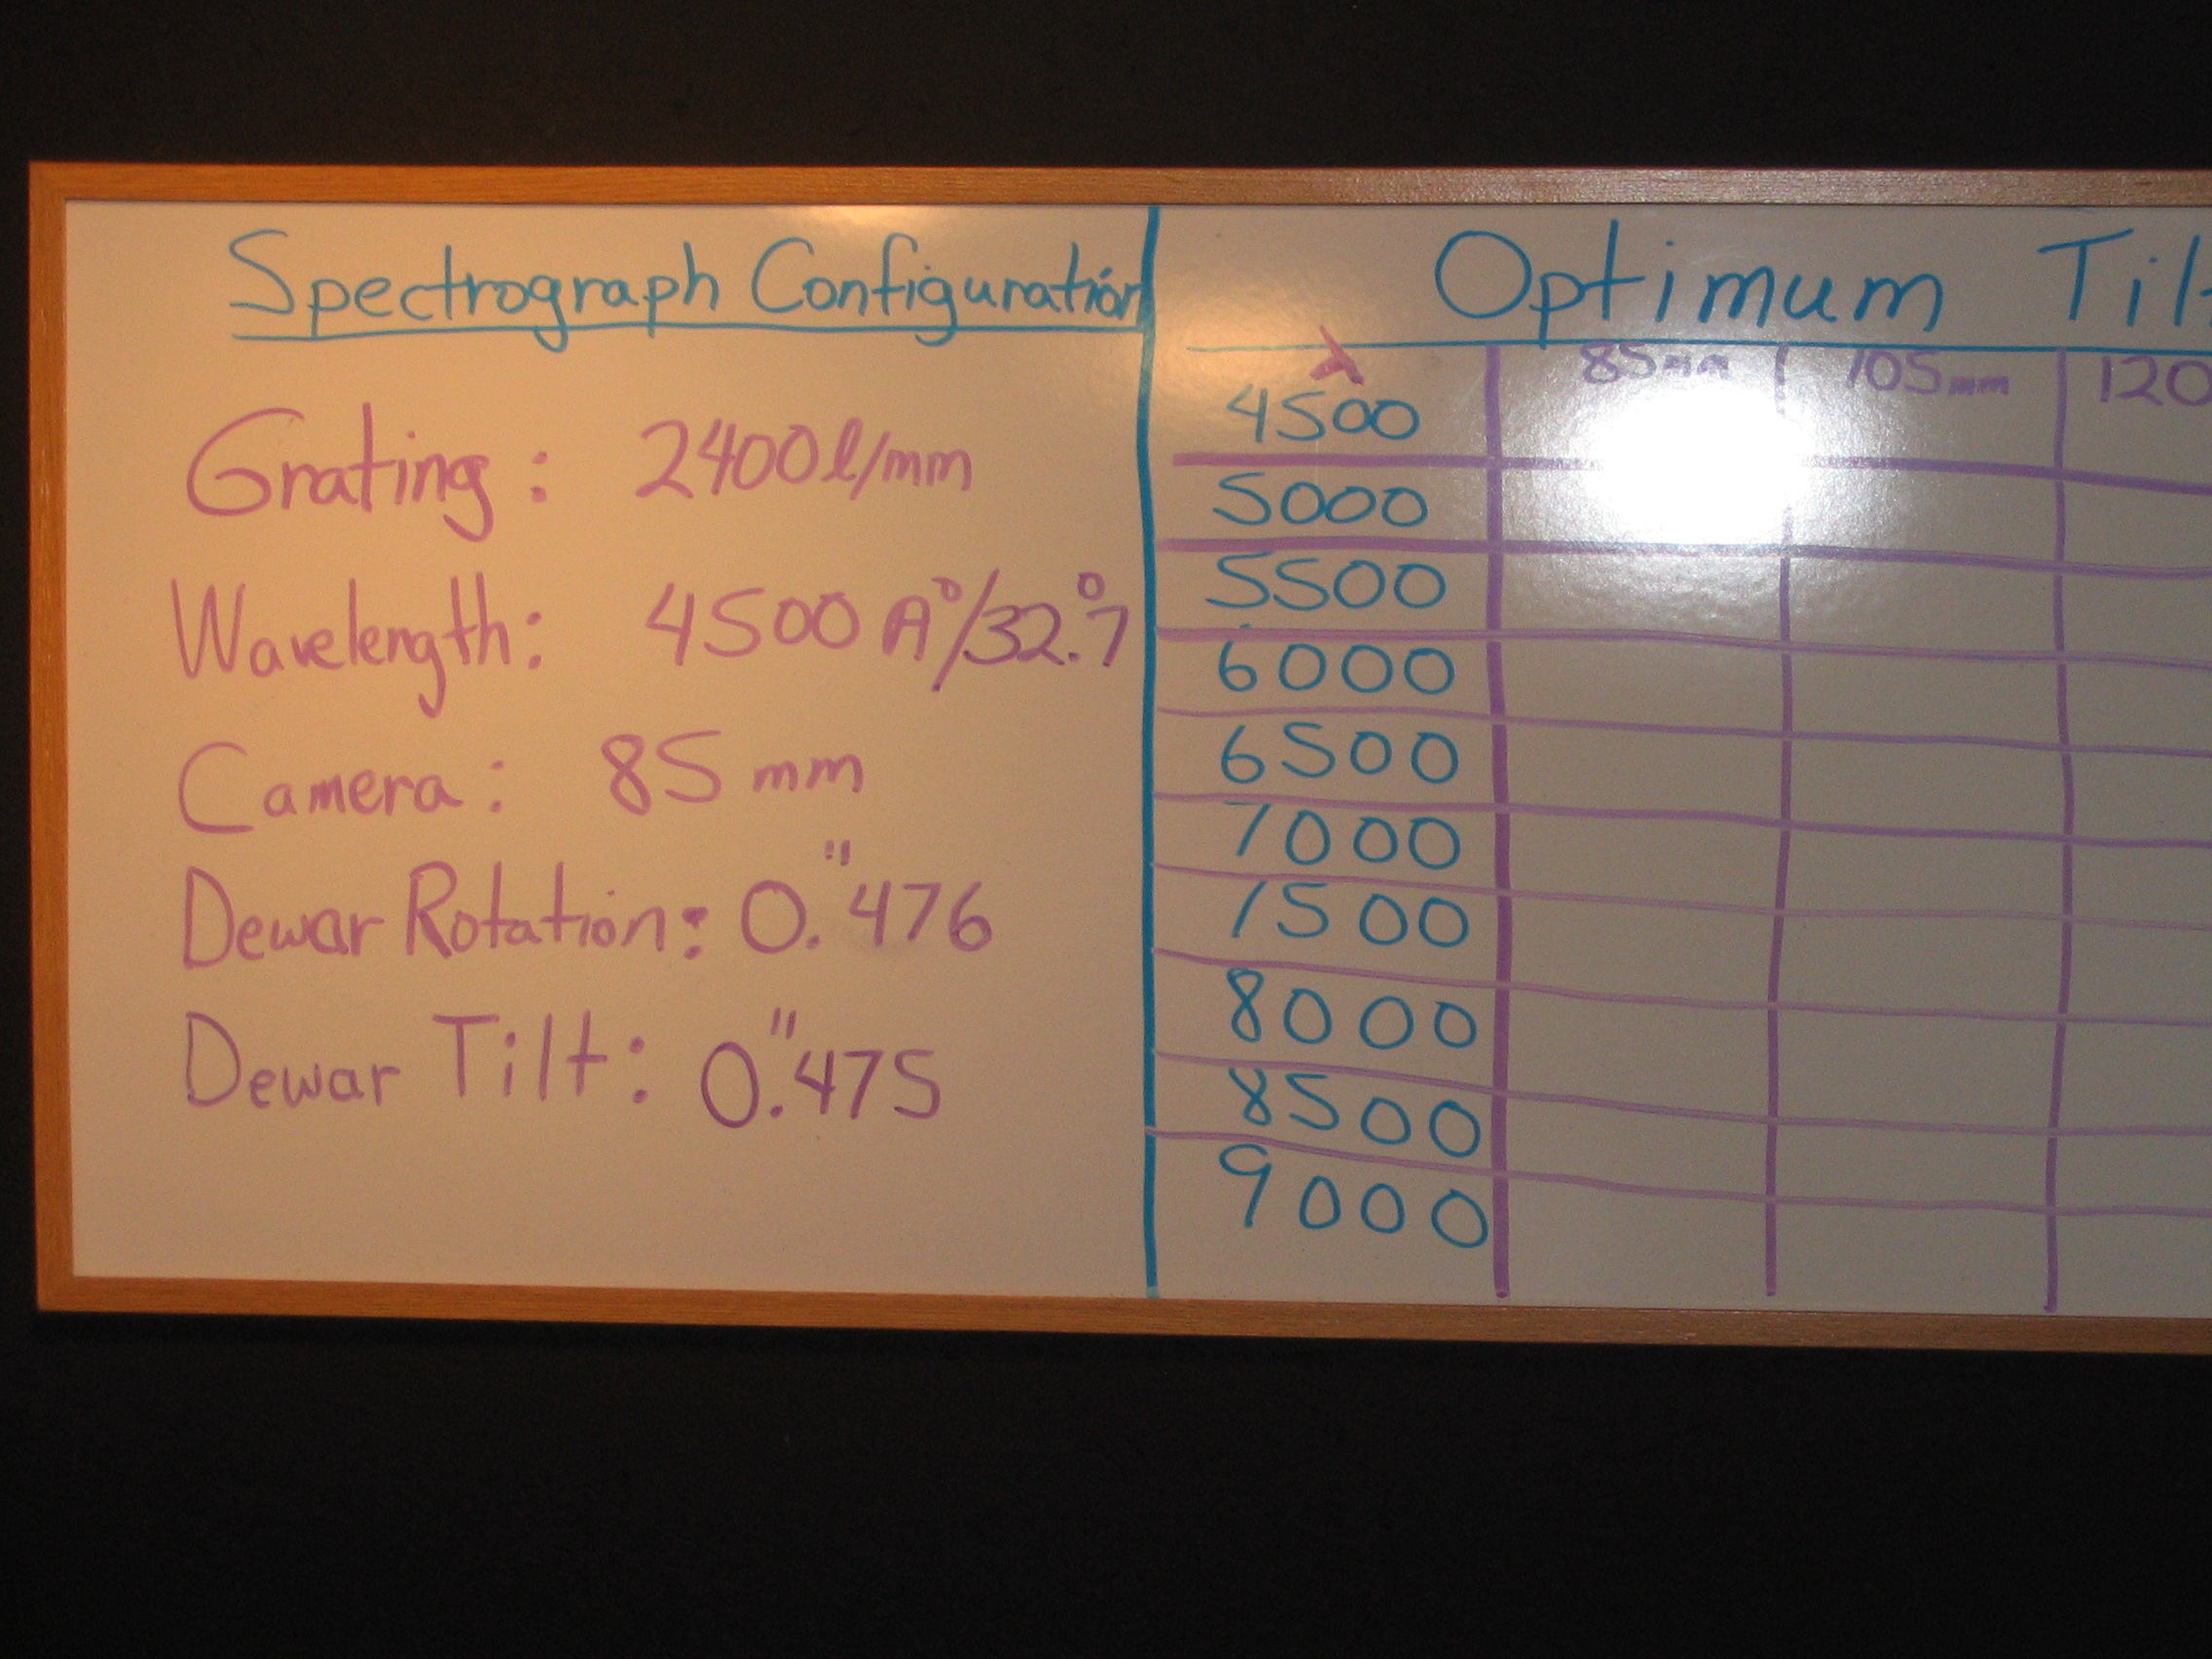 Spectrograph Configuration
Grating: 2400 l/mm
Wavelength: 4500 A°/32.°7
Camera: 85 mm
Dewar Rotation: 0."476
Dewar Tilt: 0."475
Optimum Til
λ 85mm 105mm 120
4500
5000
5500
6000
6500
7000
7500
8000
8500
9000